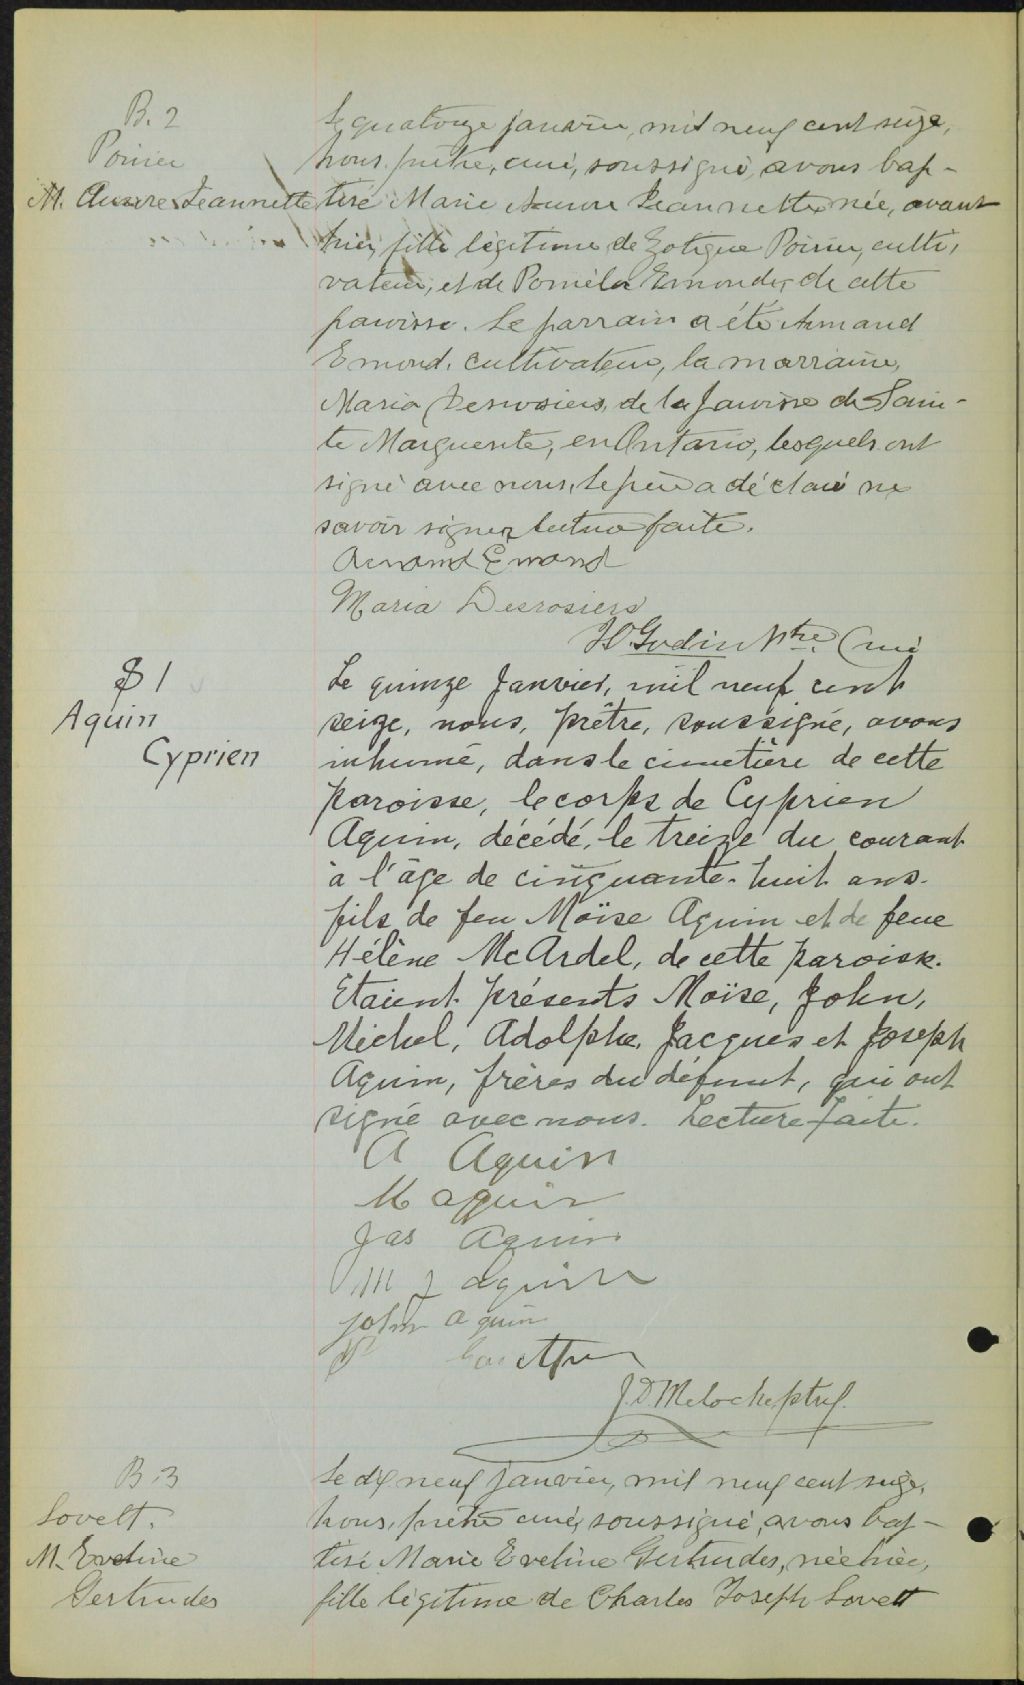 B. 2
Poirier
M. Aurore Jeannette
Le quatorze janvier, mil neuf cent seize,
nous, prêtre, curé, soussigné, avons bap-
tisé Marie Aurore Jeannette, née, avant
hier, fille légitime de Zotique Poirier, culti-
vateur, et de Poméla Emonde, de cette
paroisse. Le parrain a été Armand
Emond, cultivateur, la marraine,
Maria Desrosiers, de la paroisse de Sain-
te Marguerite, en Ontario, lesquels ont
signé avec nous, le père a déclaré ne
savoir signer, lecture faite.
Armand Emond
Maria Desrosiers
Godin Ptre. Curé
S 1
Aquin
Cyprien
Le quinze Janvier, mil neuf cent
seize, nous, prêtre, soussigné, avons
inhumé, dans le cimetière de cette
paroisse, le corps de Cyprien
Aquin, décédé, le treize du courant
à l'âge de cinquante-huit ans.
fils de feu Moïse Aquin et de feue
Hélène McArdel, de cette paroisse.
Etaient présents Moïse, John,
Michel, Adolphe, Jacques et Joseph
Aquin, frères du défunt, qui ont
signé avec nous. Lecture faite.
A Aquin
M aquin
Jas Aquin
M J aquin
john aquin
J.D. Meloche ptre
B. 3
Lovett.
M. Eveline
Gertrudes
Le dix neuf janvier, mil neuf cent seize,
nous, prêtre curé, soussigné, avons bap-
tisé Marie Eveline Gertrudes, née hier,
fille légitime de Charles Joseph Lovett